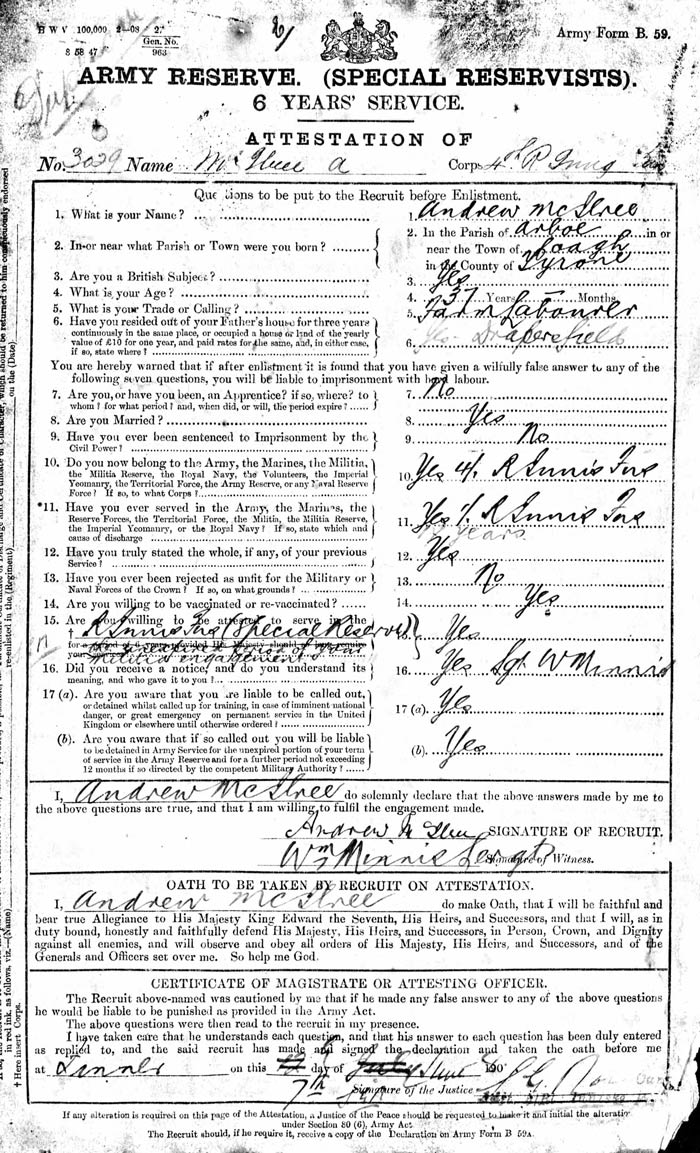 H W V 100,000 2—08 2.
Gen. No.
8 58 47
963
Army Form B. 59.
ARMY RESERVE. (SPECIAL RESERVISTS).
6 YEARS' SERVICE.
ATTESTATION OF
No. 3029 Name McIlree A Corps 4th R Innis
Questions to be put to the Recruit before Enlistment.
1. What is your Name? ... 1. Andrew McIlree
2. In or near what Parish or Town were you born? ......... 2. In the Parish of Arboe in or
near the Town of Coagh
in the County of Tyrone
3. Are you a British Subject? 3. Yes
4. What is your Age? 4. 37 Years Months
5. What is your Trade or Calling? 5. Farm Labourer
6. Have you resided out of your Father's house for three years
continuously in the same place, or occupied a house or land of the yearly
value of £10 for one year, and paid rates for the same, and, in either case,
if so, state where? 6. Yes. Drapersfield
You are hereby warned that if after enlistment it is found that you have given a wilfully false answer to any of the
following seven questions, you will be liable to imprisonment with hard labour.
7. Are you, or have you been, an Apprentice? if so, where? to
whom? for what period? and, when did, or will, the period expire? 7. No
8. Are you Married? 8. Yes
9. Have you ever been sentenced to Imprisonment by the
Civil Power? 9. No
10. Do you now belong to the Army, the Marines, the Militia,
the Militia Reserve, the Royal Navy, the Volunteers, the Imperial
Yeomanry, the Territorial Force, the Army Reserve, or any Naval Reserve
Force? If so, to what Corps? 10. Yes 4/. R Innis Fus
*11. Have you ever served in the Army, the Marines, the
Reserve Forces, the Territorial Force, the Militia, the Militia Reserve,
the Imperial Yeomanry, or the Royal Navy? If so, state which and
cause of discharge 11. Yes /. R Innis Fus
years
12. Have you truly stated the whole, if any, of your previous
Service? 12. Yes
13. Have you ever been rejected as unfit for the Military or
Naval Forces of the Crown? If so, on what grounds? 13. No
14. Are you willing to be vaccinated or re-vaccinated? 14. Yes
15. Are you willing to be attested to serve in the
† R Innis Fus (Special Reserve) Yes
militia engagement
16. Did you receive a notice, and do you understand its
meaning, and who gave it to you? 16. Yes Sgt W Minnis
17 (a). Are you aware that you are liable to be called out,
or detained whilst called up for training, in case of imminent national
danger, or great emergency on permanent service in the United
Kingdom or elsewhere until otherwise ordered? 17 (a) Yes
(b). Are you aware that if so called out you will be liable
to be detained in Army Service for the unexpired portion of your term
of service in the Army Reserve and for a further period not exceeding
12 months if so directed by the competent Military Authority? (b). Yes
I, Andrew McIlree do solemnly declare that the above answers made by me to
the above questions are true, and that I am willing to fulfil the engagement made.
Andrew McIlree SIGNATURE OF RECRUIT.
Wm Minnis Sergt Signature of Witness.
OATH TO BE TAKEN BY RECRUIT ON ATTESTATION.
I, Andrew McIlree do make Oath, that I will be faithful and
bear true Allegiance to His Majesty King Edward the Seventh, His Heirs, and Successors, and that I will, as in
duty bound, honestly and faithfully defend His Majesty, His Heirs, and Successors, in Person, Crown, and Dignity
against all enemies, and will observe and obey all orders of His Majesty, His Heirs, and Successors, and of the
Generals and Officers set over me. So help me God.
CERTIFICATE OF MAGISTRATE OR ATTESTING OFFICER.
The Recruit above-named was cautioned by me that if he made any false answer to any of the above questions
he would be liable to be punished as provided in the Army Act.
The above questions were then read to the recruit in my presence.
I have taken care that he understands each question, and that his answer to each question has been duly entered
as replied to, and the said recruit has made and signed the declaration and taken the oath before me
at on this day of 190
7th
Signature of the Justice
If any alteration is required on this page of the Attestation, a Justice of the Peace should be requested to make it and initial the alteration
under Section 80 (6), Army Act
The Recruit should, if he require it, receive a copy of the Declaration on Army Form B 59A.
in red ink, as follows, viz.—(Name) re-enlisted in the (Regiment) on the (Date)
† Here insert Corps.